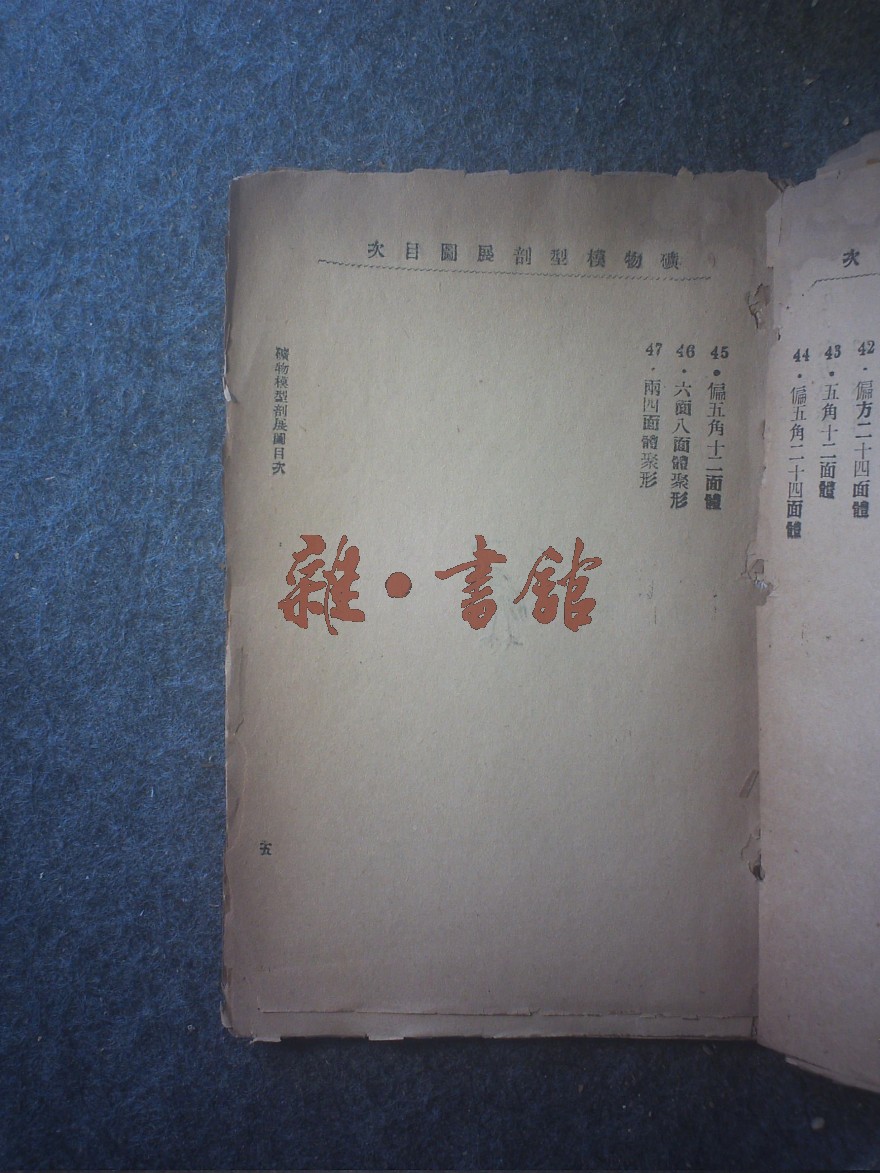 次
42．偏方二十四面體
43．五角十二面體
44．偏五角二十四面體
礦物模型剖展圖目次
45．偏五角十二面體
46．六面八面體聚形
47．兩四面體聚形
礦物模型剖展圖目次
五
雜·書館